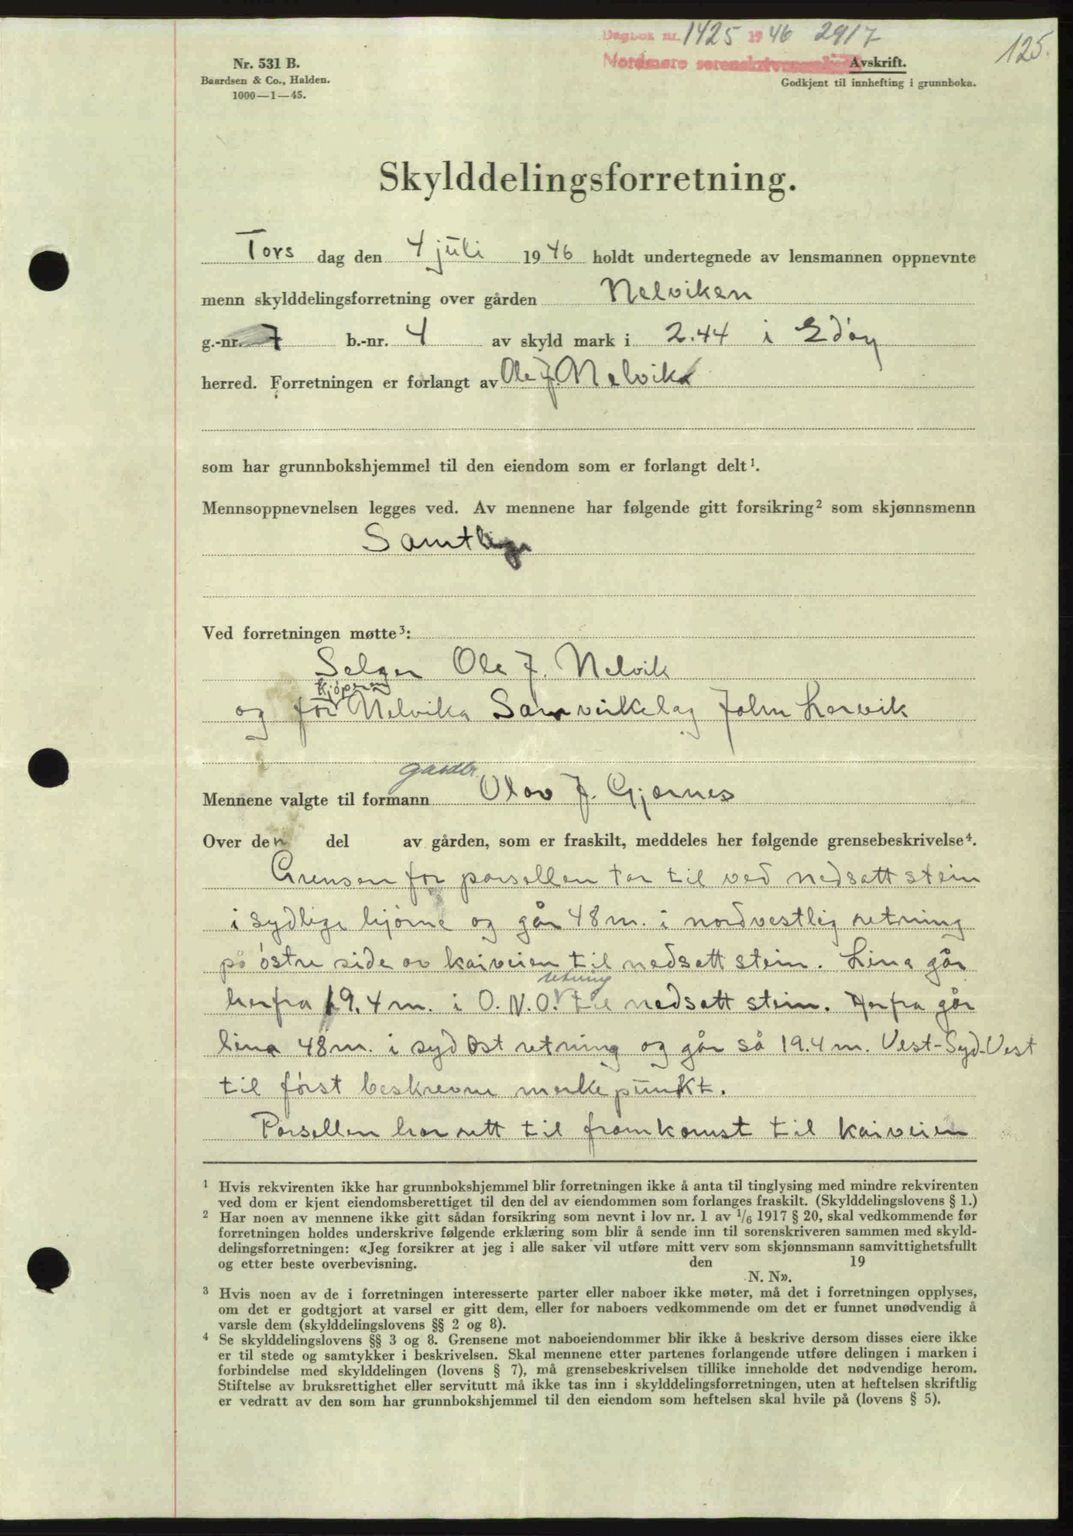 Dagbok nr. 1425 1946 2917
125.
Nordmøre sorenskriverembede
Nr. 531 B.
Baardsen & Co., Halden.
1000—1—45.
Avskrift.
Godkjent til innhefting i grunnboka.
Skylddelingsforretning.
Tors dag den 4 juli 1946 holdt undertegnede av lensmannen oppnevnte
menn skylddelingsforretning over gården Nelviken
g.-nr. 7 b.-nr. 4 av skyld mark i 2.44 i Edøy
herred. Forretningen er forlangt av Ole J. Nelvik
som har grunnbokshjemmel til den eiendom som er forlangt delt¹.
Mennsoppnevnelsen legges ved. Av mennene har følgende gitt forsikring² som skjønnsmenn
Samtlige
Ved forretningen møtte³:
Selger Ole J. Nelvik
kjøperen
og for Nelvika Samvirkelag John Lervik
gardbr.
Mennene valgte til formann Olav J. Gjørnes
Over den del av gården, som er fraskilt, meddeles her følgende grensebeskrivelse⁴.
Grensen for parsellen tar til ved nedsatt stein
i sydlige hjørne og går 48 m. i nordvestlig retning
på østre side av kaiveien til nedsatt stein. Lina går
retning
herfra 19.4 m. i O.N.O. til nedsatt stein. Herfra går
lina 48 m. i syd Øst retning og går så 19.4 m. Vest-Syd-Vest
til først beskrevne merkepunkt.
Parsellen har rett til framkomst til kaiveien
¹ Hvis rekvirenten ikke har grunnbokshjemmel blir forretningen ikke å anta til tinglysing med mindre rekvirenten
ved dom er kjent eiendomsberettiget til den del av eiendommen som forlanges fraskilt. (Skylddelingslovens § 1.)
² Har noen av mennene ikke gitt sådan forsikring som nevnt i lov nr. 1 av 1/6 1917 § 20, skal vedkommende før
forretningen holdes underskrive følgende erklæring som blir å sende inn til sorenskriveren sammen med skyld-
delingsforretningen: «Jeg forsikrer at jeg i alle saker vil utføre mitt verv som skjønnsmann samvittighetsfullt
og etter beste overbevisning. den 19
N. N».
³ Hvis noen av de i forretningen interesserte parter eller naboer ikke møter, må det i forretningen opplyses,
om det er godtgjort at varsel er gitt dem, eller for naboers vedkommende om det er funnet unødvendig å
varsle dem (skylddelingslovens §§ 2 og 8).
⁴ Se skylddelingslovens §§ 3 og 8. Grensene mot naboeiendommer blir ikke å beskrive dersom disses eiere ikke
er til stede og samtykker i beskrivelsen. Skal mennene etter partenes forlangende utføre delingen i marken i
forbindelse med skylddelingen (lovens § 7), må grensebeskrivelsen tillike inneholde det nødvendige herom.
Stiftelse av bruksrettighet eller servitutt må ikke tas inn i skylddelingsforretningen, uten at heftelsen skriftlig
er vedratt av den som har grunnbokshjemmel til den eiendom som heftelsen skal hvile på (lovens § 5).